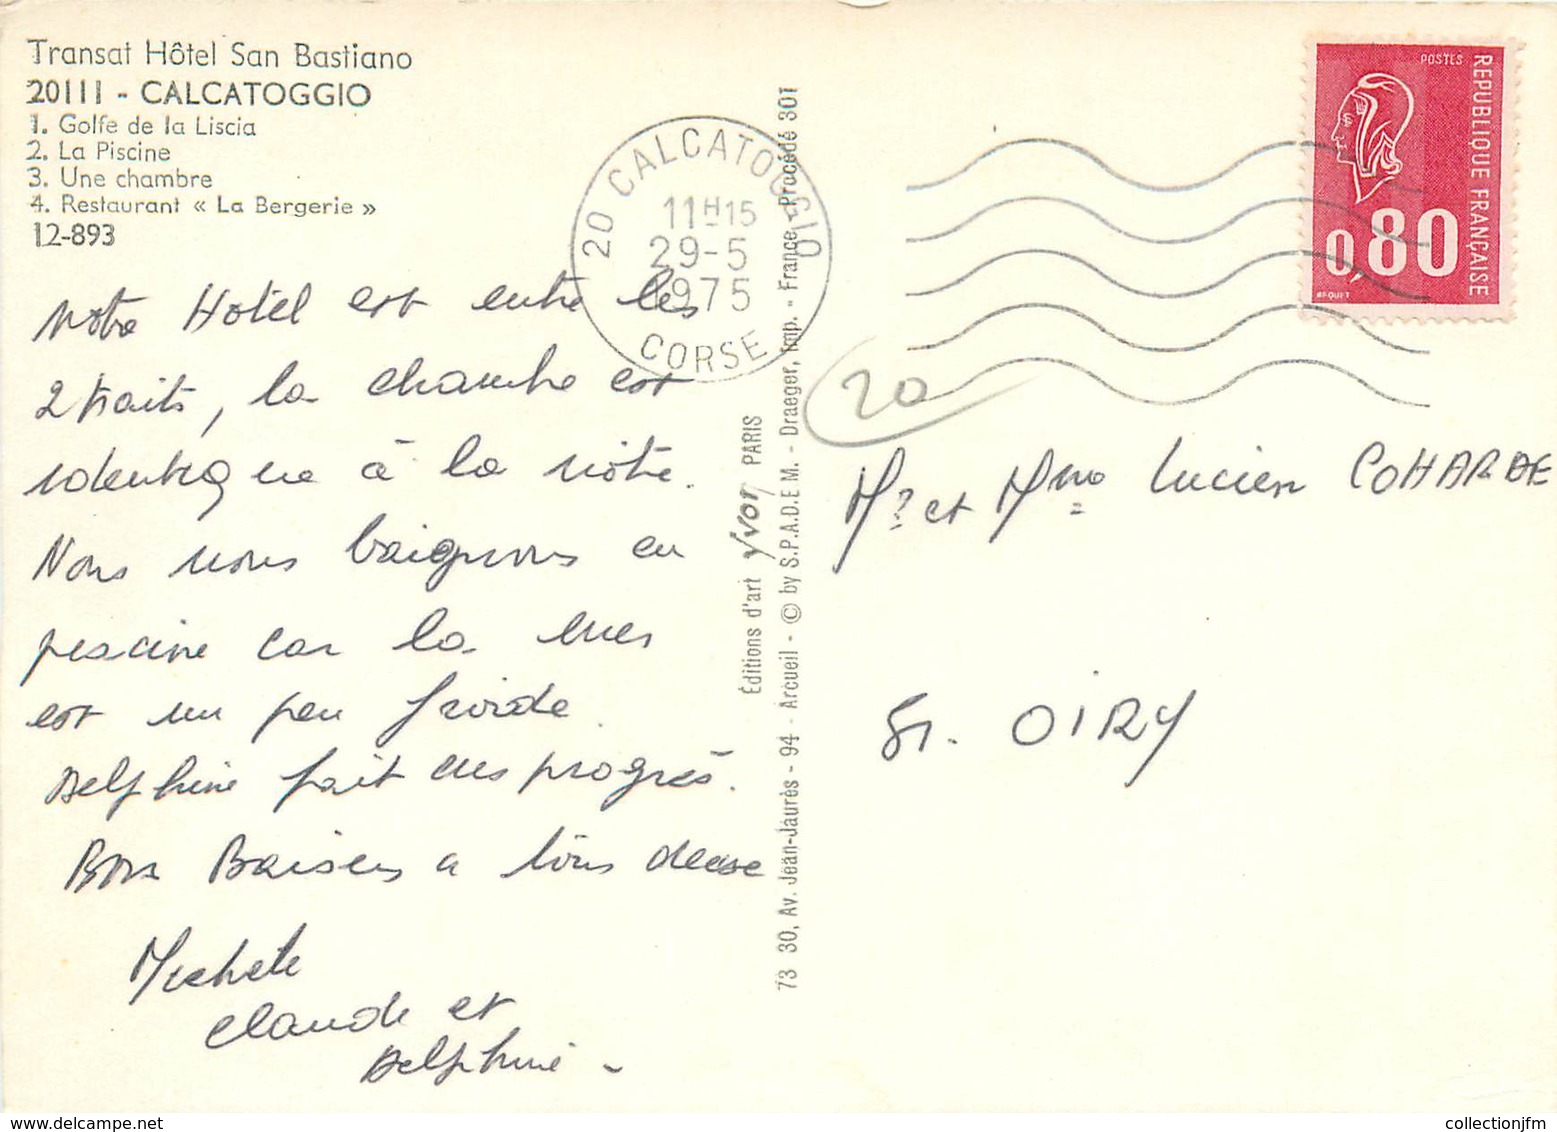 Transat Hôtel San Bastiano
20111 - CALCATOGGIO
1. Golfe de la Liscia
2. La Piscine
3. Une chambre
4. Restaurant « La Bergerie »
12-893
Notre Hotel est entre les
2 traits, la chambre est
identique à la nôtre.
Nous nous baignons en
piscine car la mer
est un peu froide.
Delphine fait des progrès.
Bons Baisers a tous deux
Michèle
Claude et
Delphine -
20 CALCATOGGIO
11H15
29-5
1975
CORSE
Éditions d'art yvon PARIS
73 30, Av. Jean-Jaurès - 94 - Arcueil - © by S.P.A.D.E.M. - Draeger, Imp. - France - Procédé 301
POSTES
REPUBLIQUE FRANÇAISE
0,80
BEQUET
20
Mr et Mme Lucien COHARDE
51. OIRY
www.collectionjfm.com